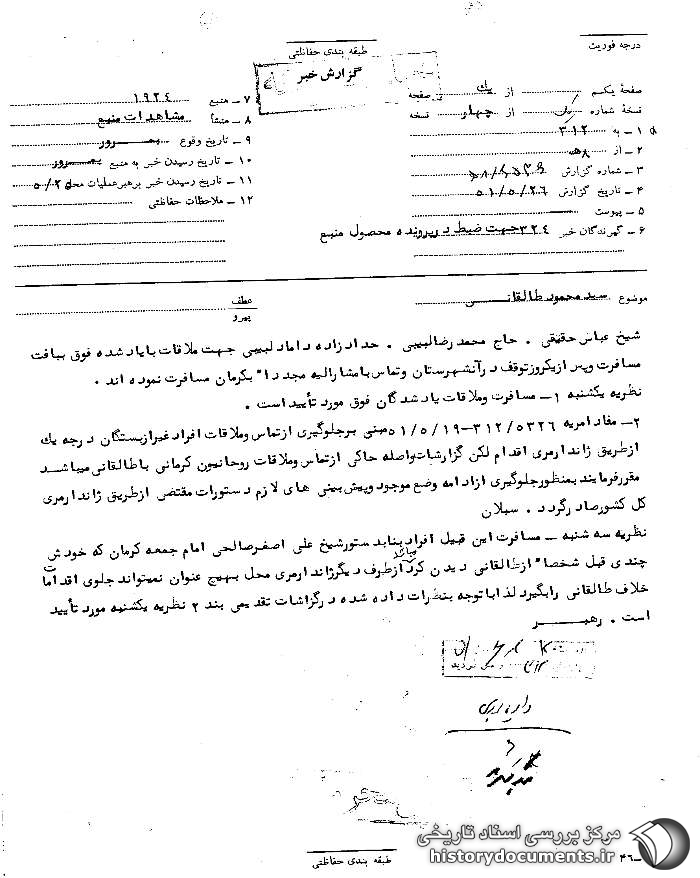 درجه فوریت
طبقه بندی حفاظتی
گزارش خبر
صفحهٔ یکم از یک صفحه
نسخهٔ شماره یک از چهار نسخه
۱ ـ به ۳۱۲
۲ ـ از ه۸
۳ ـ شماره گزارش
۴ ـ تاریخ گزارش ۵۱/۵/۲۶
۵ ـ پیوست
۶ ـ گیرندگان خبر ۳۲٤ جهت ضبط در پرونده محصول منبع
۷ ـ منبع ۱۹۲٤
۸ ـ منشأ مشاهدات منبع
۹ ـ تاریخ وقوع بمرور
۱۰ ـ تاریخ رسیدن خبر به منبع بمرور
۱۱ ـ تاریخ رسیدن خبر برهبر عملیات محل ۵۰/۲۵
۱۲ ـ ملاحظات حفاظتی
موضوع سید محمود طالقانی
عطف
پیرو
شیخ عباس حقیقی . حاج محمد رضا لبیبی . حداد زاده داماد لبیبی جهت ملاقات با یاد شده فوق ببافت
مسافرت وپس از یکروز توقف در آنشهرستان وتماس با مشارالیه مجدداً بکرمان مسافرت نموده اند .
نظریه یکشنبه ۱ ـ مسافرت وملاقات یاد شدگان فوق مورد تأیید است .
۲ـ مفاد امریه ۳۱۲/۵۳۲۶-۵۱/۵/۱۹ مبنی برجلوگیری از تماس وملاقات افراد غیر ازبستگان درجه یک
ازطریق ژاندارمری اقدام لکن گزارشات واصله حاکی از تماس وملاقات روحانیون کرمانی با طالقانی میباشد
مقرر فرمایند بمنظور جلوگیری از ادامه وضع موجود وپیش بینی های لازم دستورات مقتضی ازطریق ژاندارمری
کل کشور صادر گردد . سبلان
نظریه سه شنبه ـ مسافرت این قبیل افراد بنابد ستور شیخ علی اصغر صالحی امام جمعه کرمان که خودش
چندی قبل شخصاً از طالقانی دیدن کرد میباشد از طرف دیگر ژاندارمری محل بهیچ عنوان نمیتواند جلوی اقدامات
خلاف طالقانی رابگیرد لذا با توجه بنظرات داده شده در گزاشات تقدیمی بند ۲ نظریه یکشنبه مورد تأیید
است . رهبر
طبقه بندی حفاظتی
۴۶ـ
مرکز بررسی اسناد تاریخی
historydocuments.ir